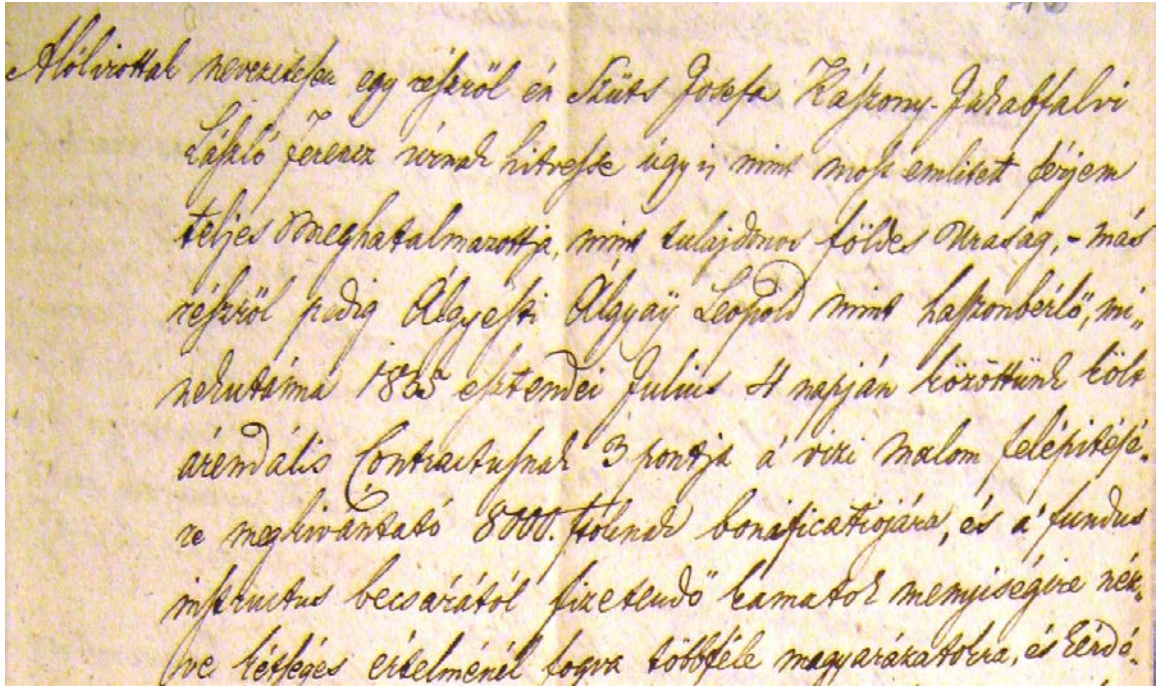 Alólirottak nevezetesen egy részről én Szüts Josefa Kászony-Jakabfalvi
László Ferencz úrnak hitvesse úgy is mint most emlitett férjem
teljes meghatalmazottja, mint tulajdonos földes Uraság, - más
részről pedig Álgyesti Álgyaÿ Leopold mint haszonbérlő, mi„
nekutánna 1835 esztendei Julius 4 napján közöttünk költ
árendális Contractusnak 3 pontja á vizi malom felépitésé„
re megkivántató 8000. ftoknak bonificatiojára, és á fundus
instructus becsárától fizetendő kamatok menyiségire néz„
ve kétséges értelménél fogva többféle magyarázatokra, és kérdé„